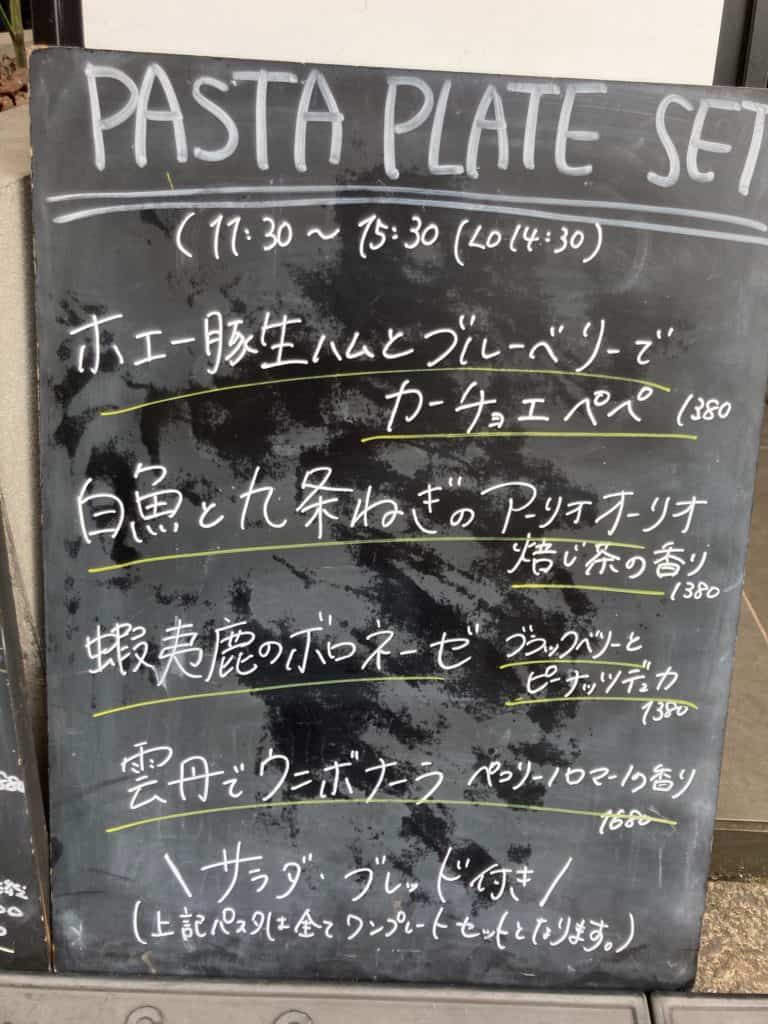 PASTA PLATE SET
( 11:30 〜 15:30 (LO 14:30)
ホエー豚生ハムとブルーベリーで
カーチョエペペ 1380
白魚と九条ねぎのアーリオオーリオ
焙じ茶の香り
1380
蝦夷鹿のボロネーゼ ブラックベリーと
ピーナッツデュカ
1380
雲丹でウニボナーラ ペコリーノロマーノの香り
1680
\ サラダ・ブレッド付き /
(上記パスタは全てワンプレートセットとなります。)